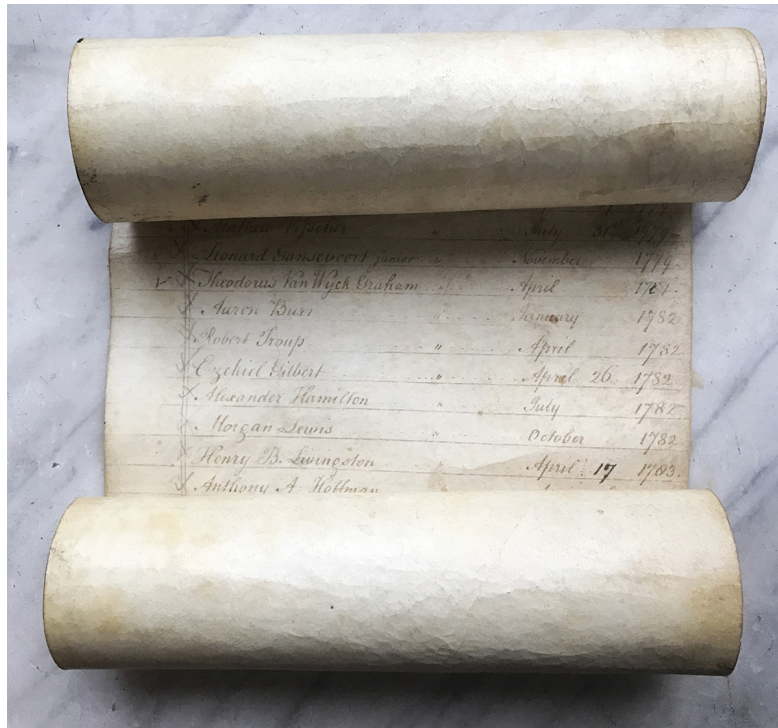 July 31 1779
Leonard Gansevoort junior " November 1779
Theodorus Van Wyck Graham " April 1781
Aaron Burr " January 1782
Robert Troup " April 1782
Ezekiel Gilbert " April 26 1782
Alexander Hamilton " July 1782
Morgan Lewis " October 1782
Henry B. Livingston " April 17 1783
Anthony A. Hoffman